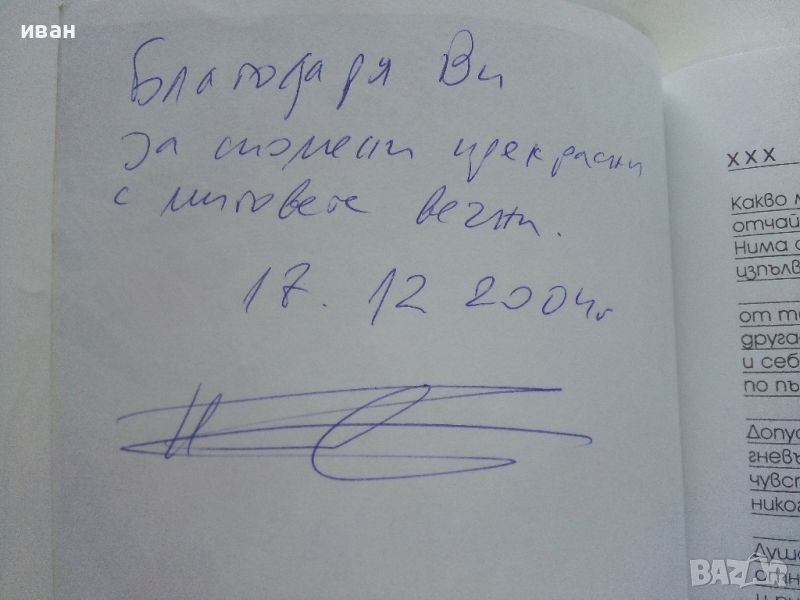 иван
Благодаря Ви
за спомени прекрасни
с митовете вечни.
17. 12 2004г
xxx
Какво
отчай
Нима
изпълв
от
друга
и себ
по пъ
Допус
гневъ
чувст
никог
Душа
BAZAR